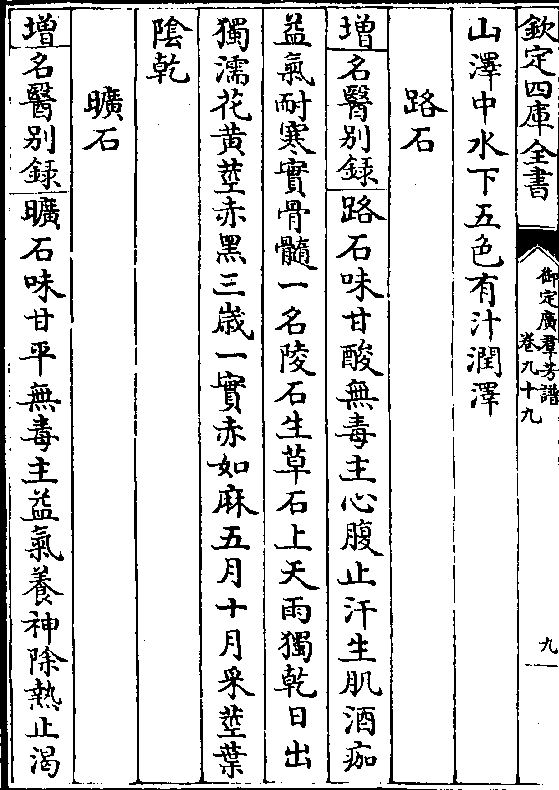 欽定四庫全書
御定廣羣芳譜
卷九十九
九
山澤中水下五色有汁潤澤
路石
增名醫别録路石味甘酸無毒主心腹止汗生肌酒痂
益氣耐寒實骨髓一名陵石生草石上天雨獨乾日出
獨濡花黄莖赤黑三歲一實赤如麻五月十月采莖葉
陰乾
曠石
增名醫别録曠石味甘平無毒主益氣養神除熱止渴